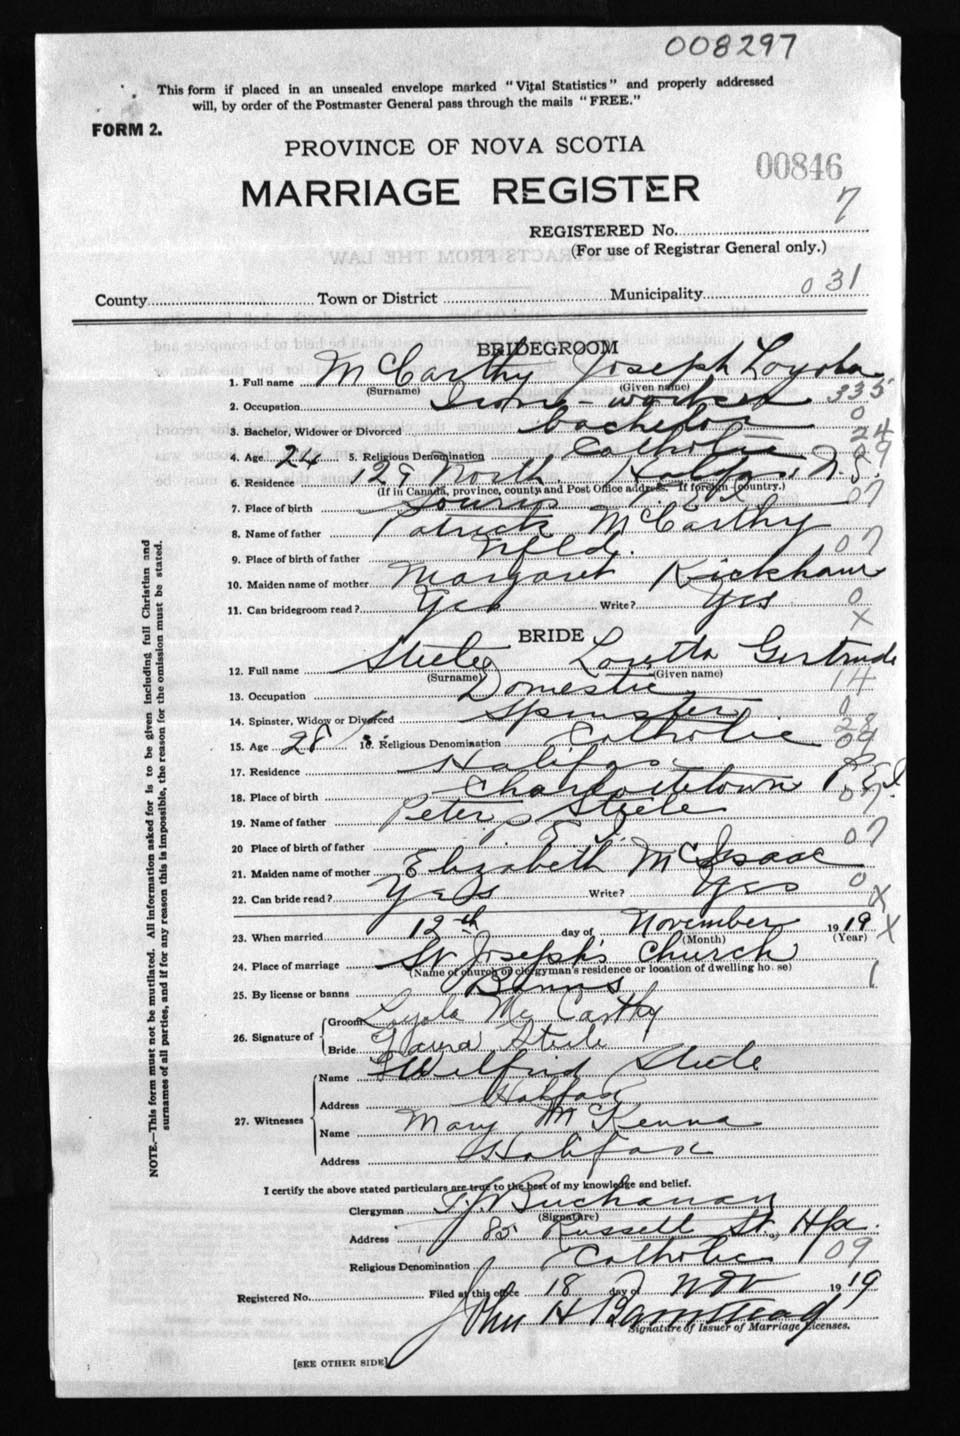 008297
This form if placed in an unsealed envelope marked "Vital Statistics" and properly addressed
will, by order of the Postmaster General pass through the mails "FREE."
FORM 2.
PROVINCE OF NOVA SCOTIA
00846
MARRIAGE REGISTER
7
REGISTERED No.
(For use of Registrar General only.)
County Town or District Municipality 031
BRIDEGROOM
1. Full name McCarthy Joseph Loyola
(Surname) (Given name)
2. Occupation Iron-worker 335
3. Bachelor, Widower or Divorced bachelor 0
24
4. Age 24 5. Religious Denomination Catholic 09
6. Residence 129 North. Halifax. N.S.
(If in Canada, province, county and Post Office address. If foreign country.)
7. Place of birth Souris 07
8. Name of father Patrick McCarthy
9. Place of birth of father Nfld. 07
10. Maiden name of mother Margaret Kickham
11. Can bridegroom read? Yes Write? Yes 0
X
BRIDE
12. Full name Steele Loretta Gertrude
(Surname) (Given name)
13. Occupation Domestic 14
14. Spinster, Widow or Divorced Spinster 0
28
15. Age 28 16. Religious Denomination Catholic 09
17. Residence Halifax
18. Place of birth Charlottetown P.E.I.
07
19. Name of father Peter Steele
20 Place of birth of father P.E.I. 07
21. Maiden name of mother Elizabeth McIsaac
22. Can bride read? Yes Write? Yes 0
X
23. When married 12th day of November 1919 X
(Month) (Year)
24. Place of marriage St Joseph's Church
(Name of church or clergyman's residence or location of dwelling house)
25. By license or banns Banns 1
26. Signature of Groom Loyola McCarthy
Bride Laura Steele
27. Witnesses Name Wilfrid Steele
Address Halifax
Name Mary McKenna
Address Halifax
I certify the above stated particulars are true to the best of my knowledge and belief.
Clergyman T.J. Buchanan
(Signature)
Address 85 Russell St. Hfx.
Religious Denomination Catholic 09
Registered No. Filed at this office 18 day of Nov 1919
John H Barnstead
Signature of Issuer of Marriage Licenses.
[SEE OTHER SIDE]
NOTE.—This form must not be mutilated. All information asked for is to be given including full Christian and
surnames of all parties, and if for any reason this is impossible, the reason for the omission must be stated.